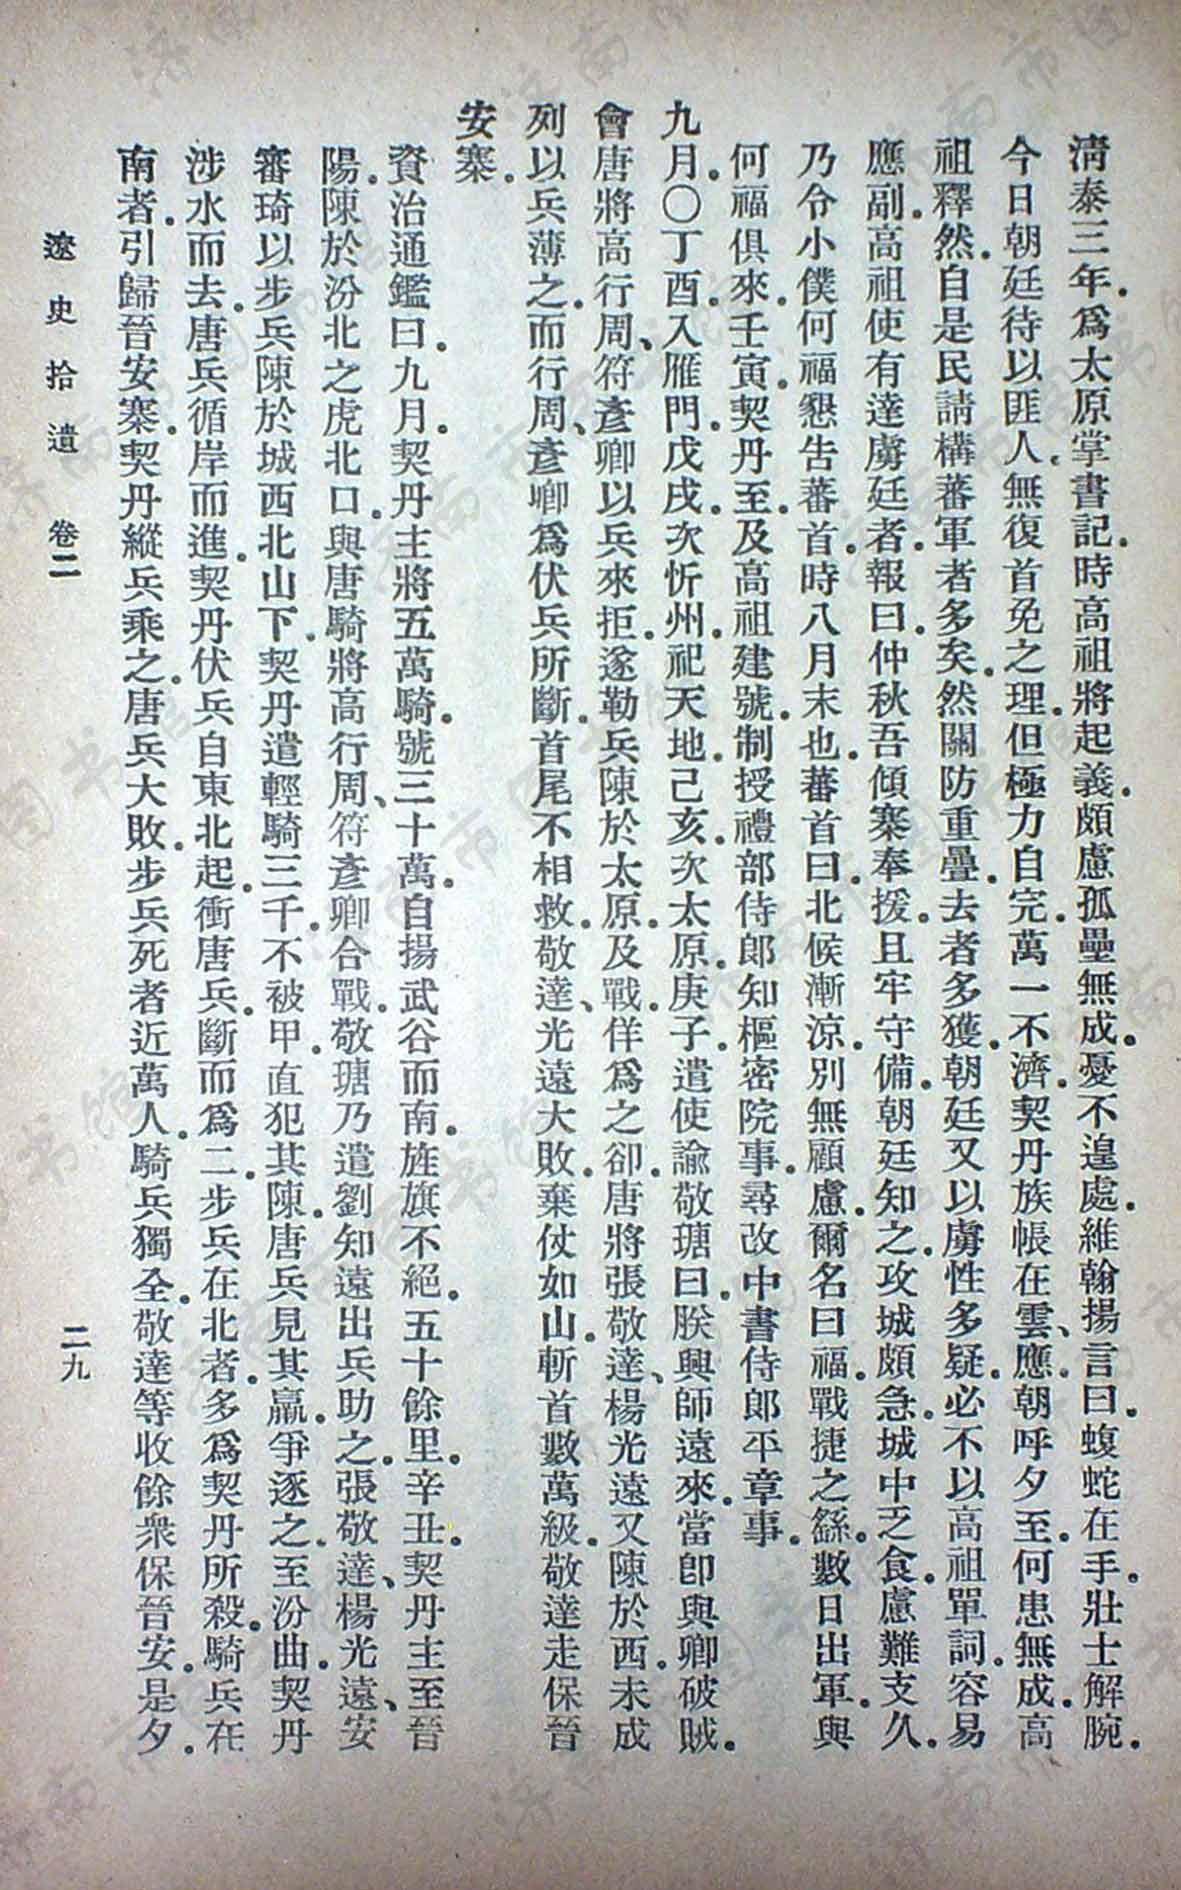 清泰三年。爲太原掌書記。時高祖將起義。頗慮孤壘無成。憂不遑處。維翰揚言曰。蝮蛇在手。壯士解腕。
今日朝廷待以匪人。無復首免之理。但極力自完。萬一不濟。契丹族帳在雲、應。朝呼夕至。何患無成。高
祖釋然。自是民請構蕃軍者多矣。然關防重疊。去者多獲。朝廷又以虜性多疑。必不以高祖單詞。容易
應副。高祖使有達虜廷者。報曰。仲秋吾傾寨奉援。且牢守備。朝廷知之。攻城頗急。城中乏食。慮難支久。
乃令小僕何福懇告蕃首。時八月末也。蕃首曰。北候漸涼。別無顧慮。爾名曰福。戰捷之繇。數日出軍。與
何福俱來。壬寅。契丹至。及高祖建號。制授禮部侍郎知樞密院事。尋改中書侍郎平章事。
九月。〇丁酉。入雁門。戊戌。次忻州。祀天地。己亥。次太原。庚子。遣使諭敬瑭曰。朕興師遠來。當卽與卿破賊。
會唐將高行周、符彥卿以兵來拒。遂勒兵陳於太原。及戰。佯爲之卻。唐將張敬達、楊光遠又陳於西。未成
列。以兵薄之。而行周、彥卿爲伏兵所斷。首尾不相救。敬達、光遠大敗。棄仗如山。斬首數萬級。敬達走保晉
安寨。
資治通鑑曰。九月。契丹主將五萬騎。號三十萬。自揚武谷而南。旌旗不絕。五十餘里。辛丑。契丹主至晉
陽。陳於汾北之虎北口。與唐騎將高行周、符彥卿合戰。敬瑭乃遣劉知遠出兵助之。張敬達、楊光遠、安
審琦以步兵陳於城西北山下。契丹遣輕騎三千。不被甲。直犯其陳。唐兵見其羸。爭逐之。至汾曲。契丹
涉水而去。唐兵循岸而進。契丹伏兵自東北起。衝唐兵。斷而爲二。步兵在北者。多爲契丹所殺。騎兵在
南者。引歸晉安寨。契丹縱兵乘之。唐兵大敗。步兵死者近萬人。騎兵獨全。敬達等收餘衆保晉安。是夕。
遼史拾遺 卷二 二九